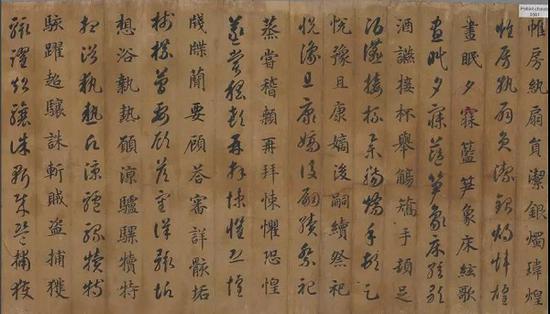 帷房紈扇員潔銀燭煒煌
帷房紈扇員潔銀燭煒煌
晝眠夕寐藍筍象床絃歌
晝眠夕寐藍筍象床絃歌
酒讌接杯舉觴矯手頓足
酒讌接杯舉觴矯手頓足
悅豫且康嫡後嗣續祭祀
悅豫且康嫡後嗣續祭祀
蒸嘗稽顙再拜悚懼恐惶
蒸嘗稽顙再拜悚懼恐惶
牋牒簡要顧荅審詳骸垢
牋牒簡要顧荅審詳骸垢
想浴執熱願涼驢騾犢特
想浴執熱願涼驢騾犢特
駭躍超驤誅斬賊盜捕獲
駭躍超驤誅斬賊盜捕獲